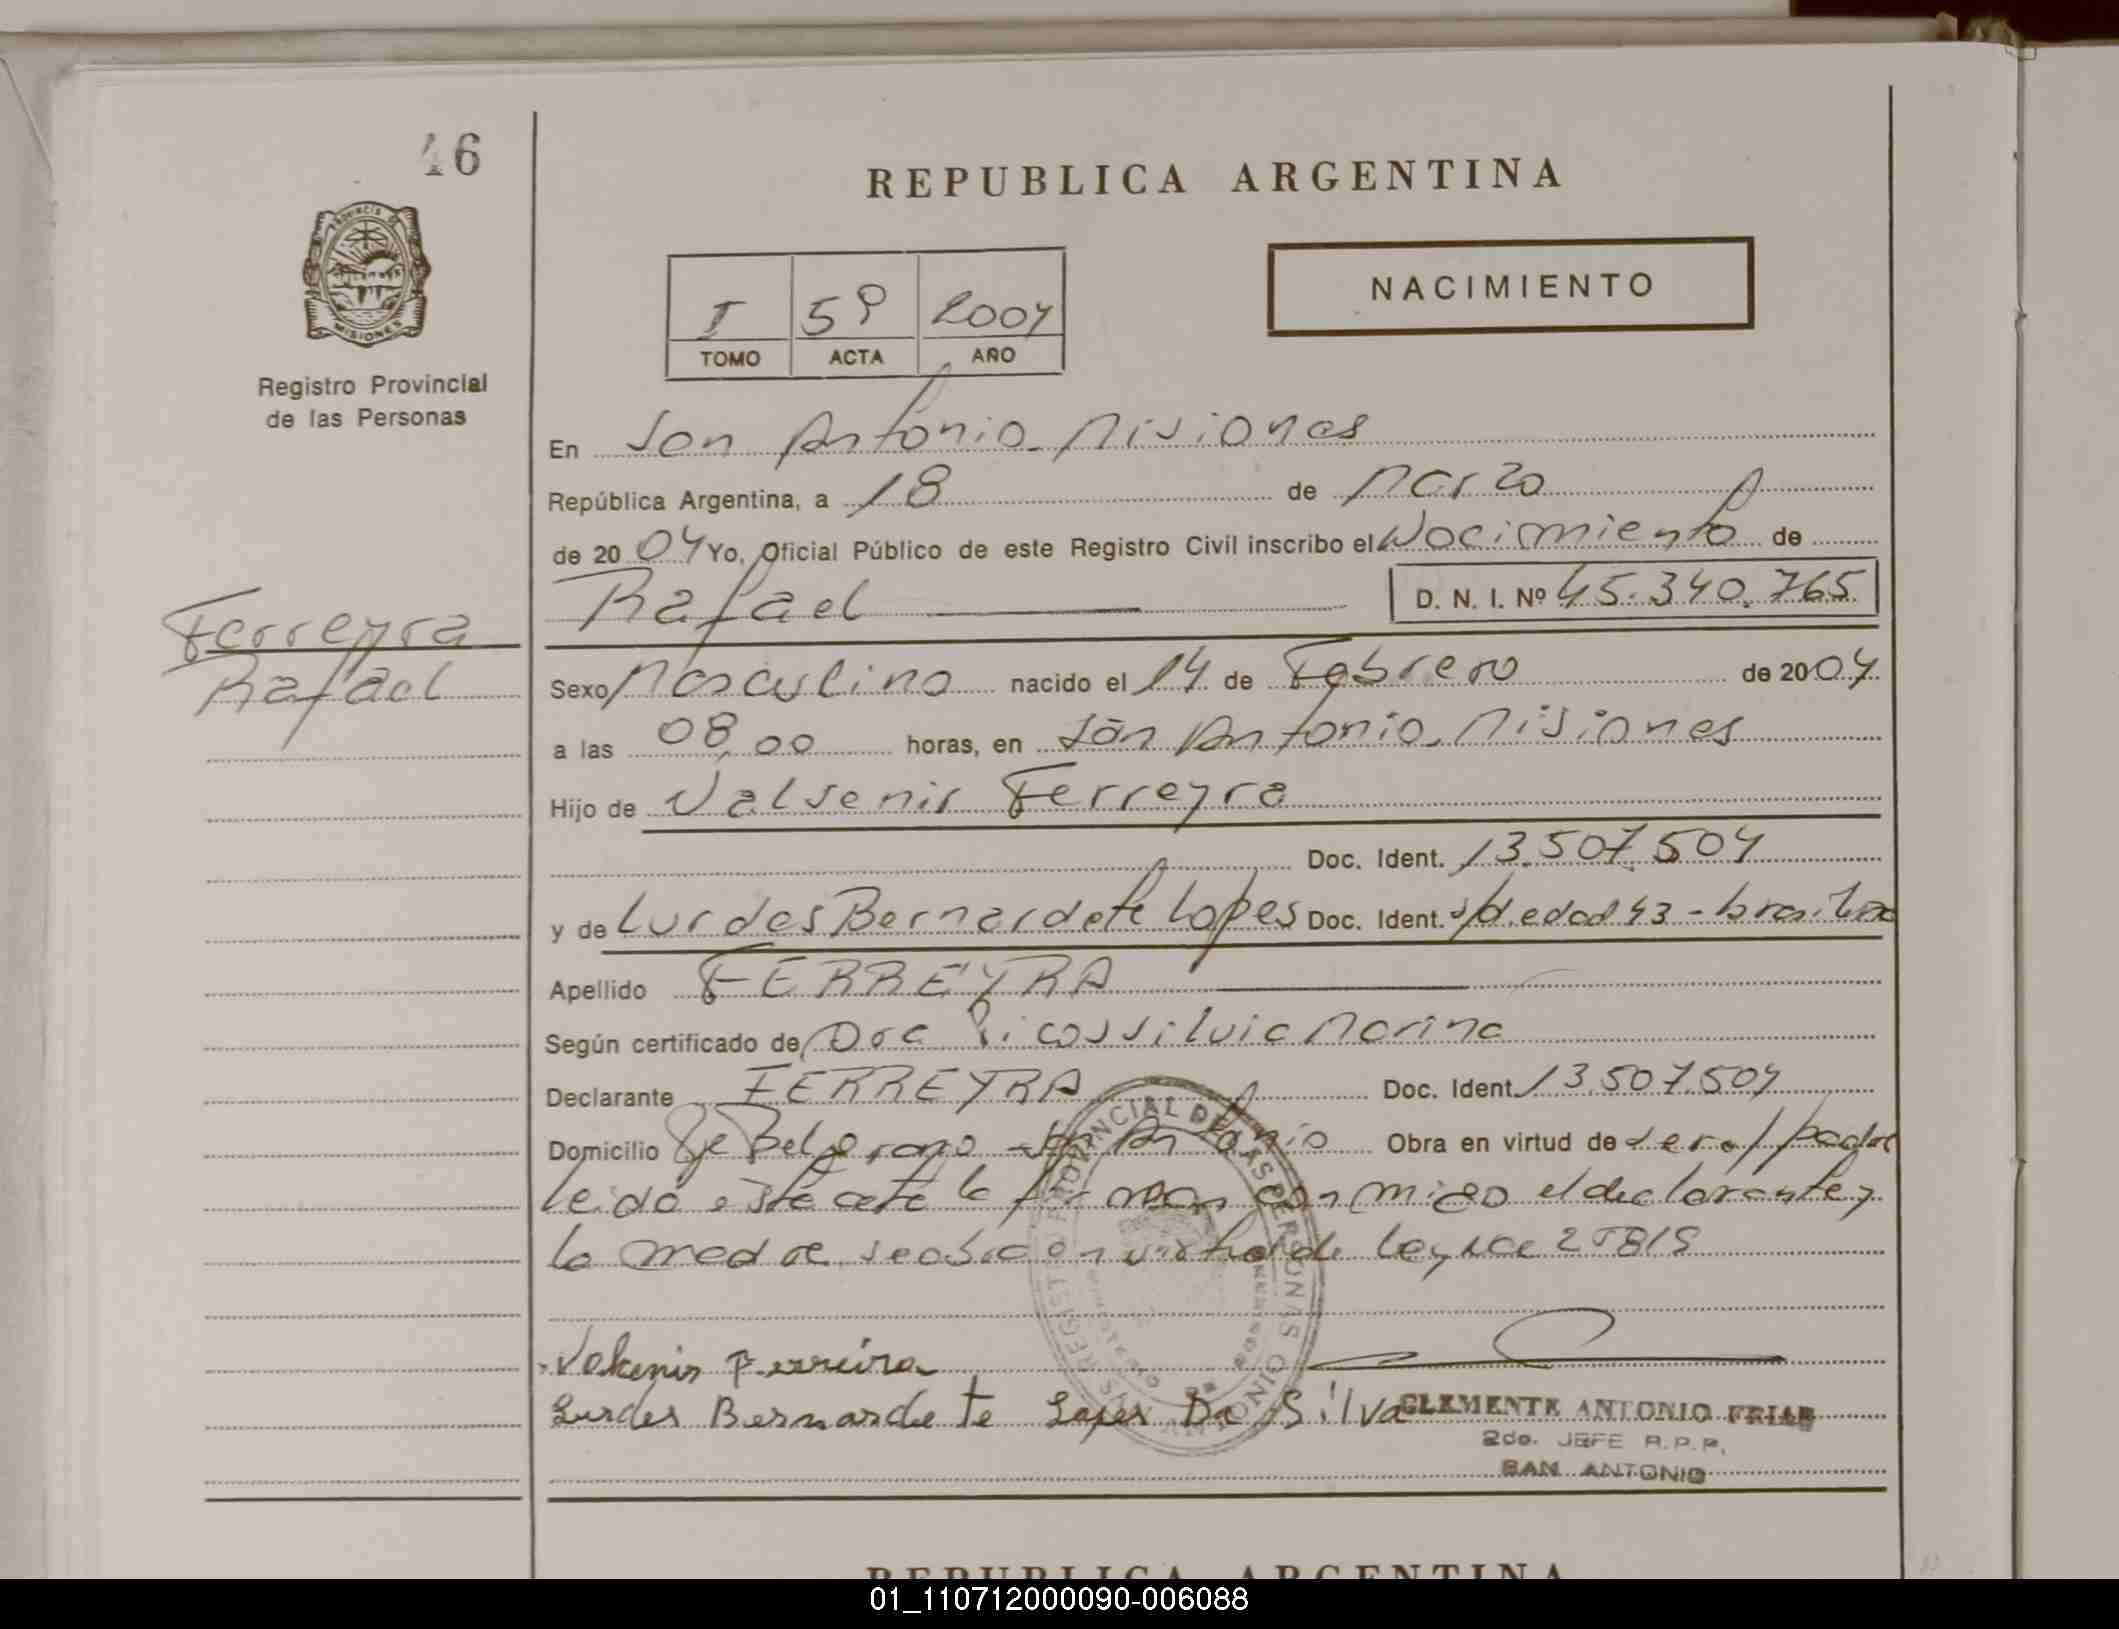 46
REPUBLICA ARGENTINA
PROVINCIA DE
MISIONES
NACIMIENTO
I 59 2004
TOMO ACTA AÑO
Registro Provincial
de las Personas
En San Antonio Misiones
República Argentina, a 18 de Marzo
de 20 04 Yo, Oficial Público de este Registro Civil inscribo el Nacimiento de
Rafael D. N. I. Nº 45.340.765
Ferreyra
Rafael
Sexo Masculino nacido el 14 de Febrero de 20 04
a las 08,00 horas, en San Antonio. Misiones
Hijo de Valsenir Ferreyra
Doc. Ident. 13.507.504
y de Lurdes Bernardete Lopes Doc. Ident. s/d. edad 43 - brasilera
Apellido FERREYRA
Según certificado de Dra Silvia Marina
Declarante FERREYRA Doc. Ident. 13.507.504
Domicilio Belgrano San Antonio Obra en virtud de ser el padre
leida este acta la firman conmigo el declarante y
la madre, en virtud de Ley 25818
Valsenir Ferreira
Lurdes Bernardete Lopes Da Silva
REGISTRO PROVINCIAL DE LAS PERSONAS
CLEMENTE ANTONIO FRIAS
2do. JEFE R.P.P.
SAN ANTONIO
REPUBLICA ARGENTINA
01_110712000090-006088